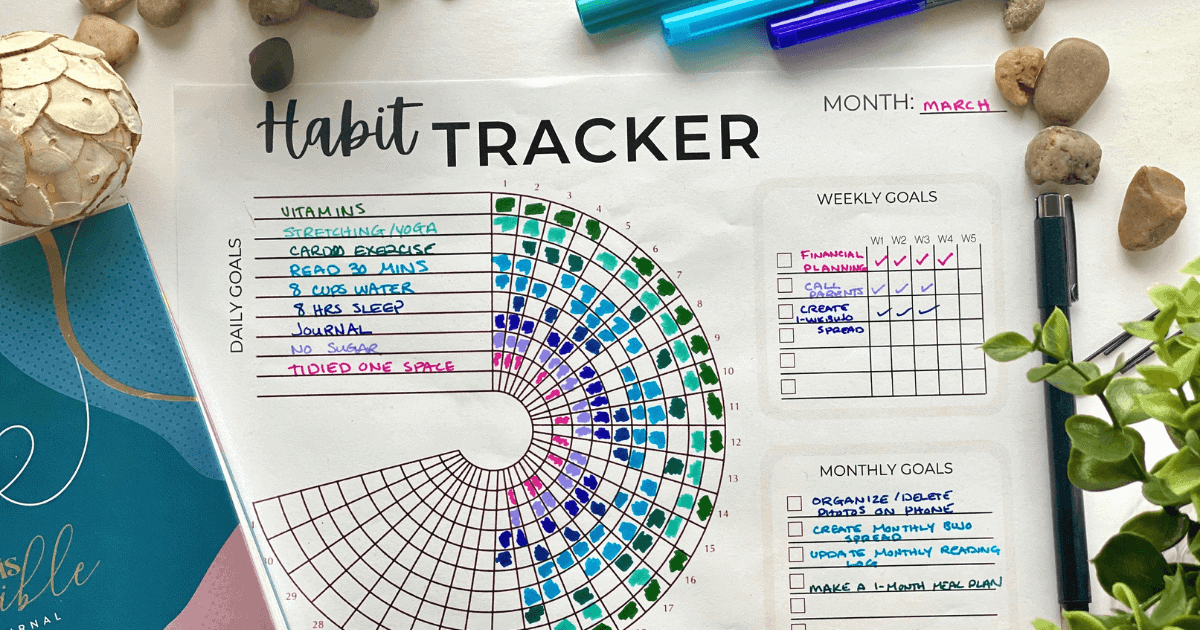 Habit TRACKER
MONTH: MARCH
DAILY GOALS
VITAMINS
STRETCHING/YOGA
CARDIO EXERCISE
READ 30 MINS
8 CUPS WATER
8 HRS SLEEP
JOURNAL
NO SUGAR
TIDIED ONE SPACE
1
2
3
4
5
6
7
8
9
10
11
12
13
14
15
16
17
28
29
30
WEEKLY GOALS
W1 W2 W3 W4 W5
FINANCIAL
PLANNING
CALL
PARENTS
CREATE
1-WK BUJO
SPREAD
MONTHLY GOALS
ORGANIZE/DELETE
PHOTOS ON PHONE
CREATE MONTHLY BUJO
SPREAD
UPDATE MONTHLY READING
LOG
MAKE A 1-MONTH MEAL PLAN